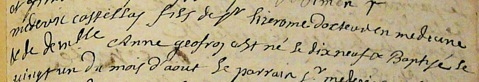 mederic cassellas fils de sr hierome docteur en medicine
& de demlle Anne geofroy est né le dixneuf & Baptisé le
vingt un du mois d'aout le parrain sr mederic